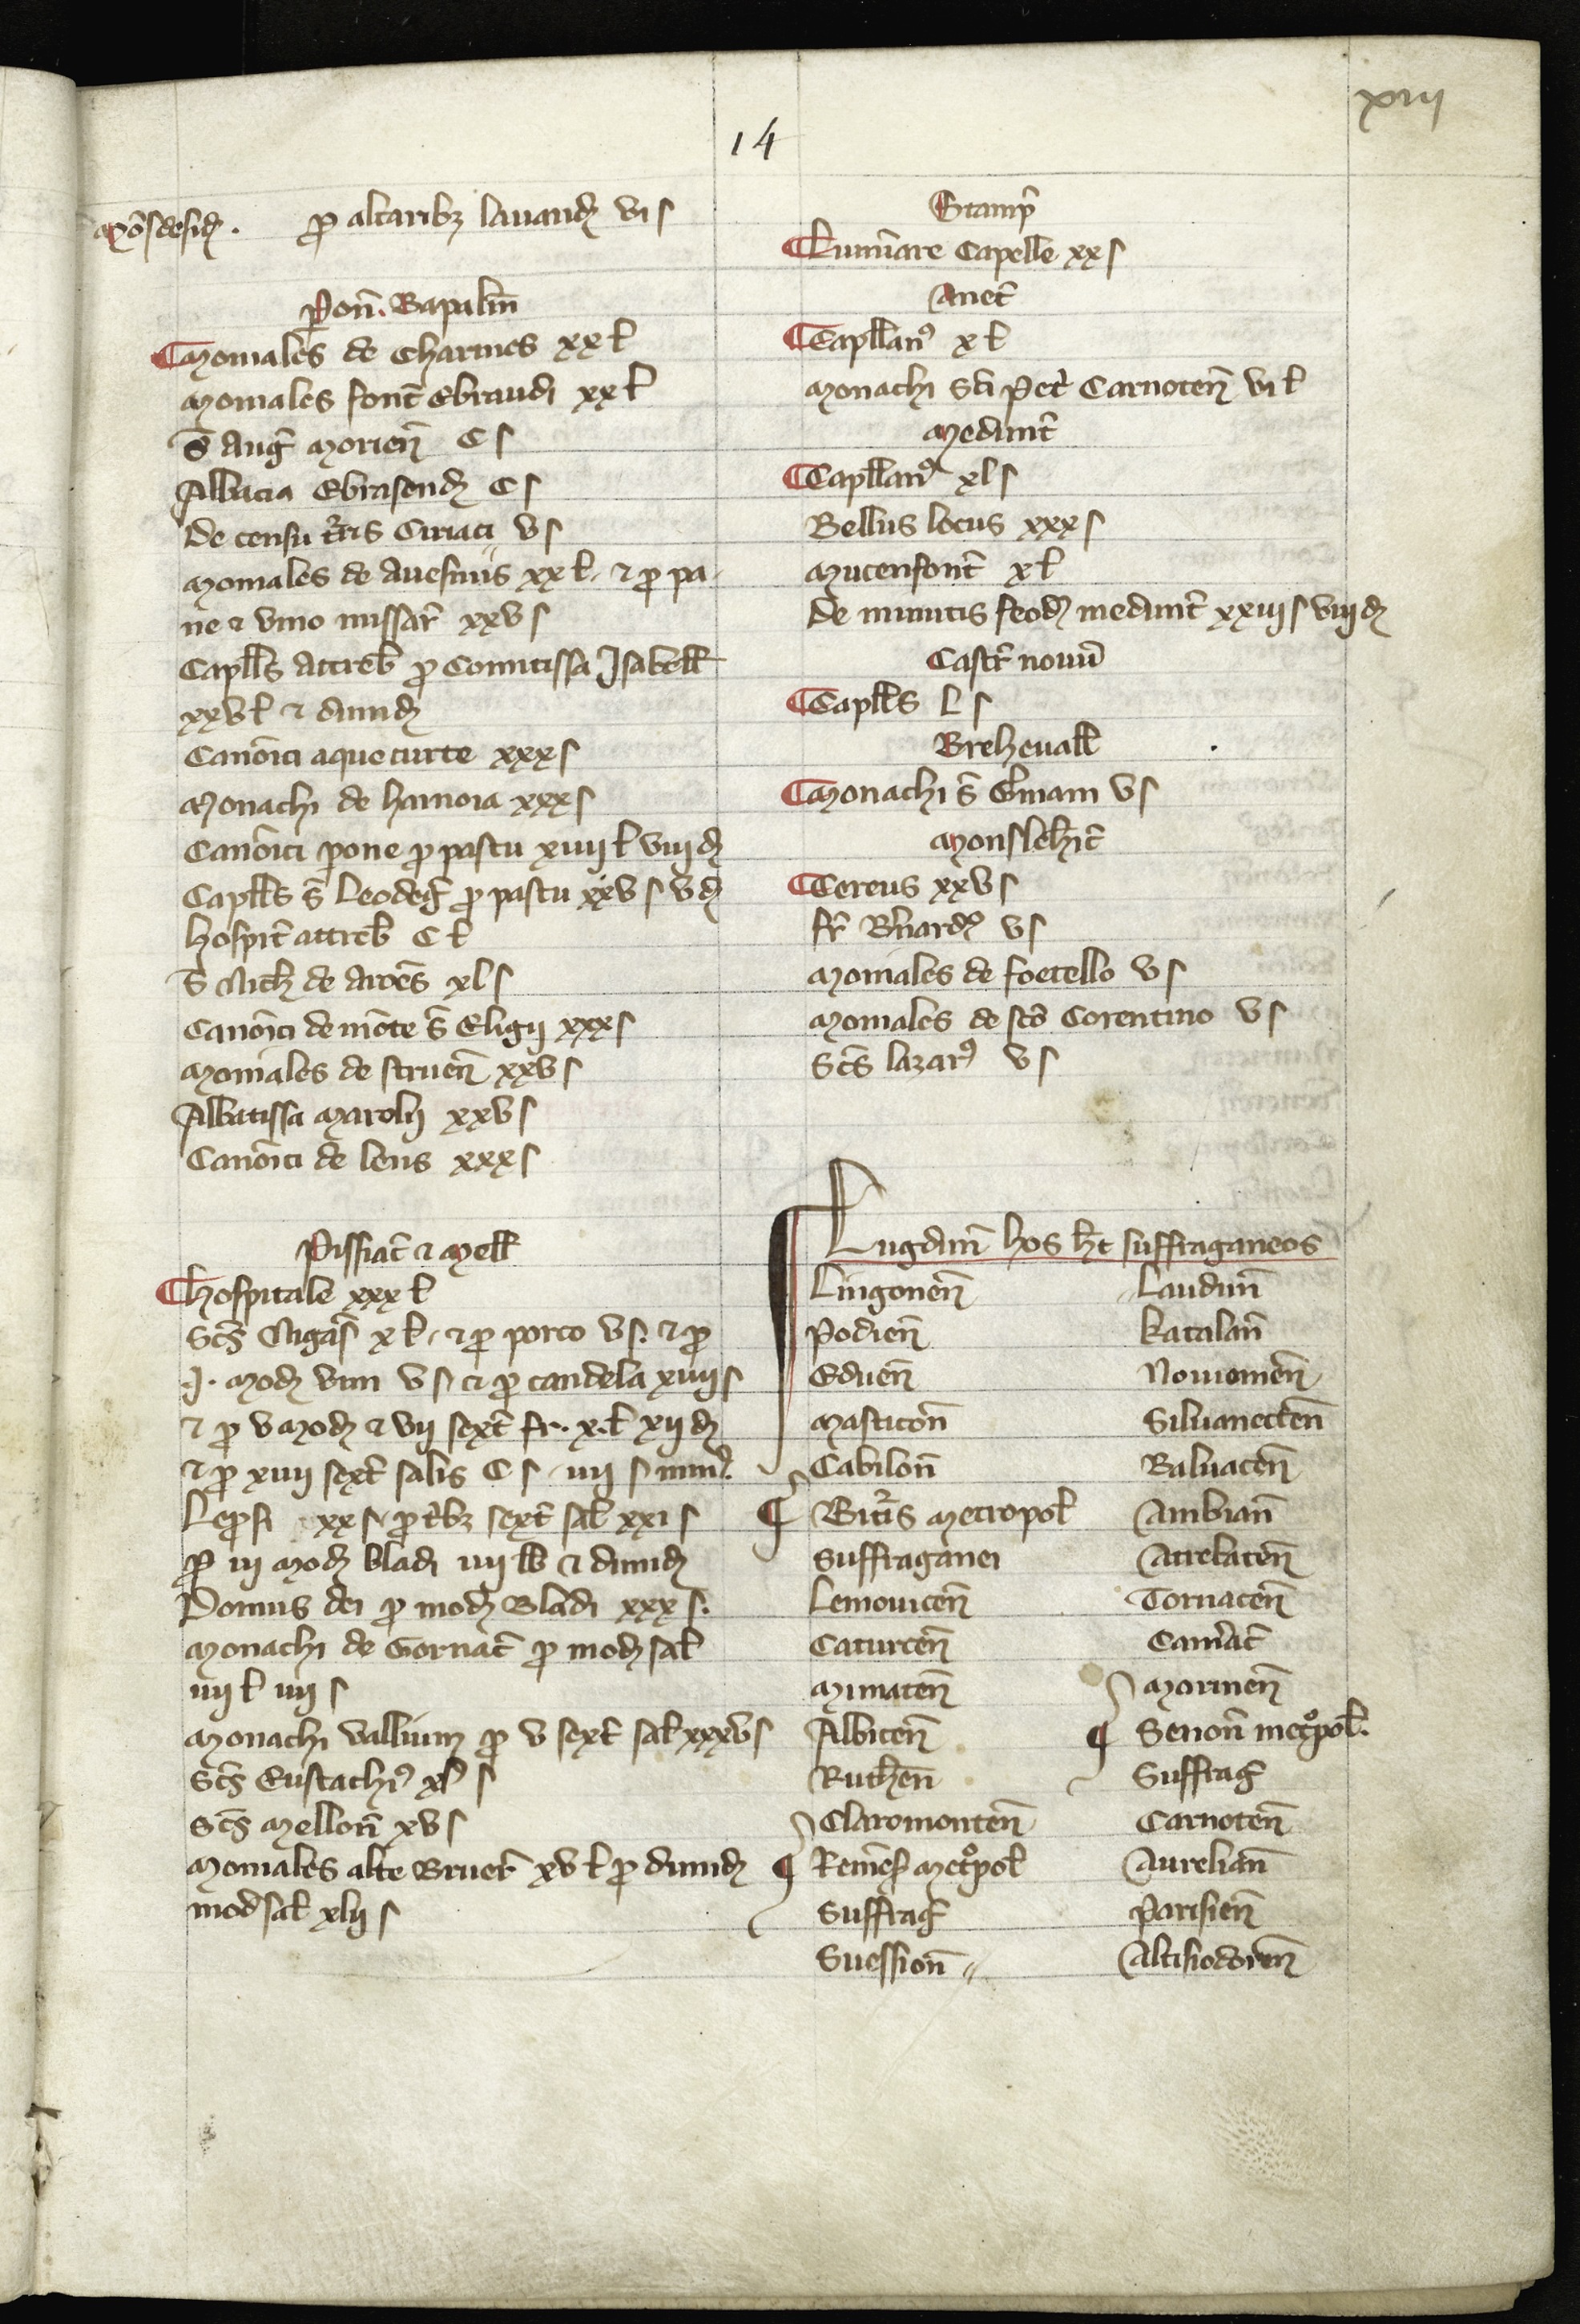 xiiij
14
Mōsdesiđ. p̱ altaribȝ lauanđ vi s
Pon̄. Bapalm̄
Moniales de Charmes xx ł
Moniales font̄ Ebraudi xx ł
S̄ Aug̃ Morien̄ C s
Abbacia Ebrasenđ C s
De censu t̃ris Ciriaci v s
Moniales de Auesnus xx ł. ⁊ p̱ pa
ne ⁊ vino missar̃ xxv s
Capll̄s Attreb̄ p̱ Comitissa Isabell̄
xxv ł ⁊ dimiđ
Canōici aque curte xxx s
Monachi de hamoia xxx s
Canōici pone p̱ pastu xiiij ł viij đ
Capll̄s s̄ Leodeg̃ p̱ pastu xxv s v đ
hospit̄ attreb̄ C ł
S̄ Nich̄ de Arōes xl s
Canōici de mōte s̄ Eligij xxx s
Moniales de struen̄ xxv s
Abbatissa Marolij xxv s
Canōici de lens xxx s
Pissiac̄ ⁊ Mell̄
hospitale xxx ł
Scs̄ Nigas̄ x ł. ⁊ p̱ porco v s. ⁊ p̱
.j. mođ vini v s ci p̱ candela xiiij s
⁊ p̱ v mođ ⁊ vij sext̄ fr. x. ł xij đ
⁊ p̱ xiiij sext̄ salis C s iiij s min⁹.
Lep̱si xx s p̱ tb̃ȝ sext̄ sal̄ xxi s
p̱ iij mođ bladi iiij lb̄ ⁊ dimiđ
Domus dei p̱ mođ Bladi xxx s.
Monachi de Gornac̄ p̱ mođ sal̄
iiij ł iiij s
Monachi vallium p̱ v sext̄ sal̄ xxxv s
Scs̄ Eustachi⁹ xl s
Scs̄ Mellon̄ xv s
Moniales alte Bruer̄ xv ł p̱ dimiđ
mod sal̄ xlij s
Stamp̄
Lumīare Capelle xx s
Anet̄
Capllan⁹ x ł
Monachi Sc̄i Pet̃ Carnoten̄ vi ł
Medunt̄
Capllan⁹ xl s
Bellus locus xxx s
Mucenfont̄ x ł
De minutis feođ medunt̄ xxiij s viij đ
Castr̄ nouū
Capll̄s L s
Breheuall̄
Monachi s̄ Gm̄am v s
Monsleh̄ic̄
Cereus xxv s
fr̄ Bn̄ard⁹ v s
Moniales de foetello v s
Moniales de sc̄o Corentino v s
Scs̄ lazar⁹ v s
Lugdun̄ hos h̄t suffraganeos
Lingonen̄
Podien̄
Eduen̄
Masticon̄
Cabilon̄
Bit̃is Metropol̄
Suffraganei
Lemouicen̄
Caturcen̄
Mimaten̄
Albicen̄
Ruthen̄
Claromonten̄
Remēs Met°pol̄
Suffrag̃
Suession̄
Laudun̄
Katalan̄
Nouiomen̄
Siluanecten̄
Baluacen̄
Ambian̄
Atrebaten̄
Tornacen̄
Cam̃ac̄
Morinen̄
Senon̄ met°pol̄.
Suffrag̃
Carnoten̄
Aurelian̄
Parisien̄
Altisiodoren̄